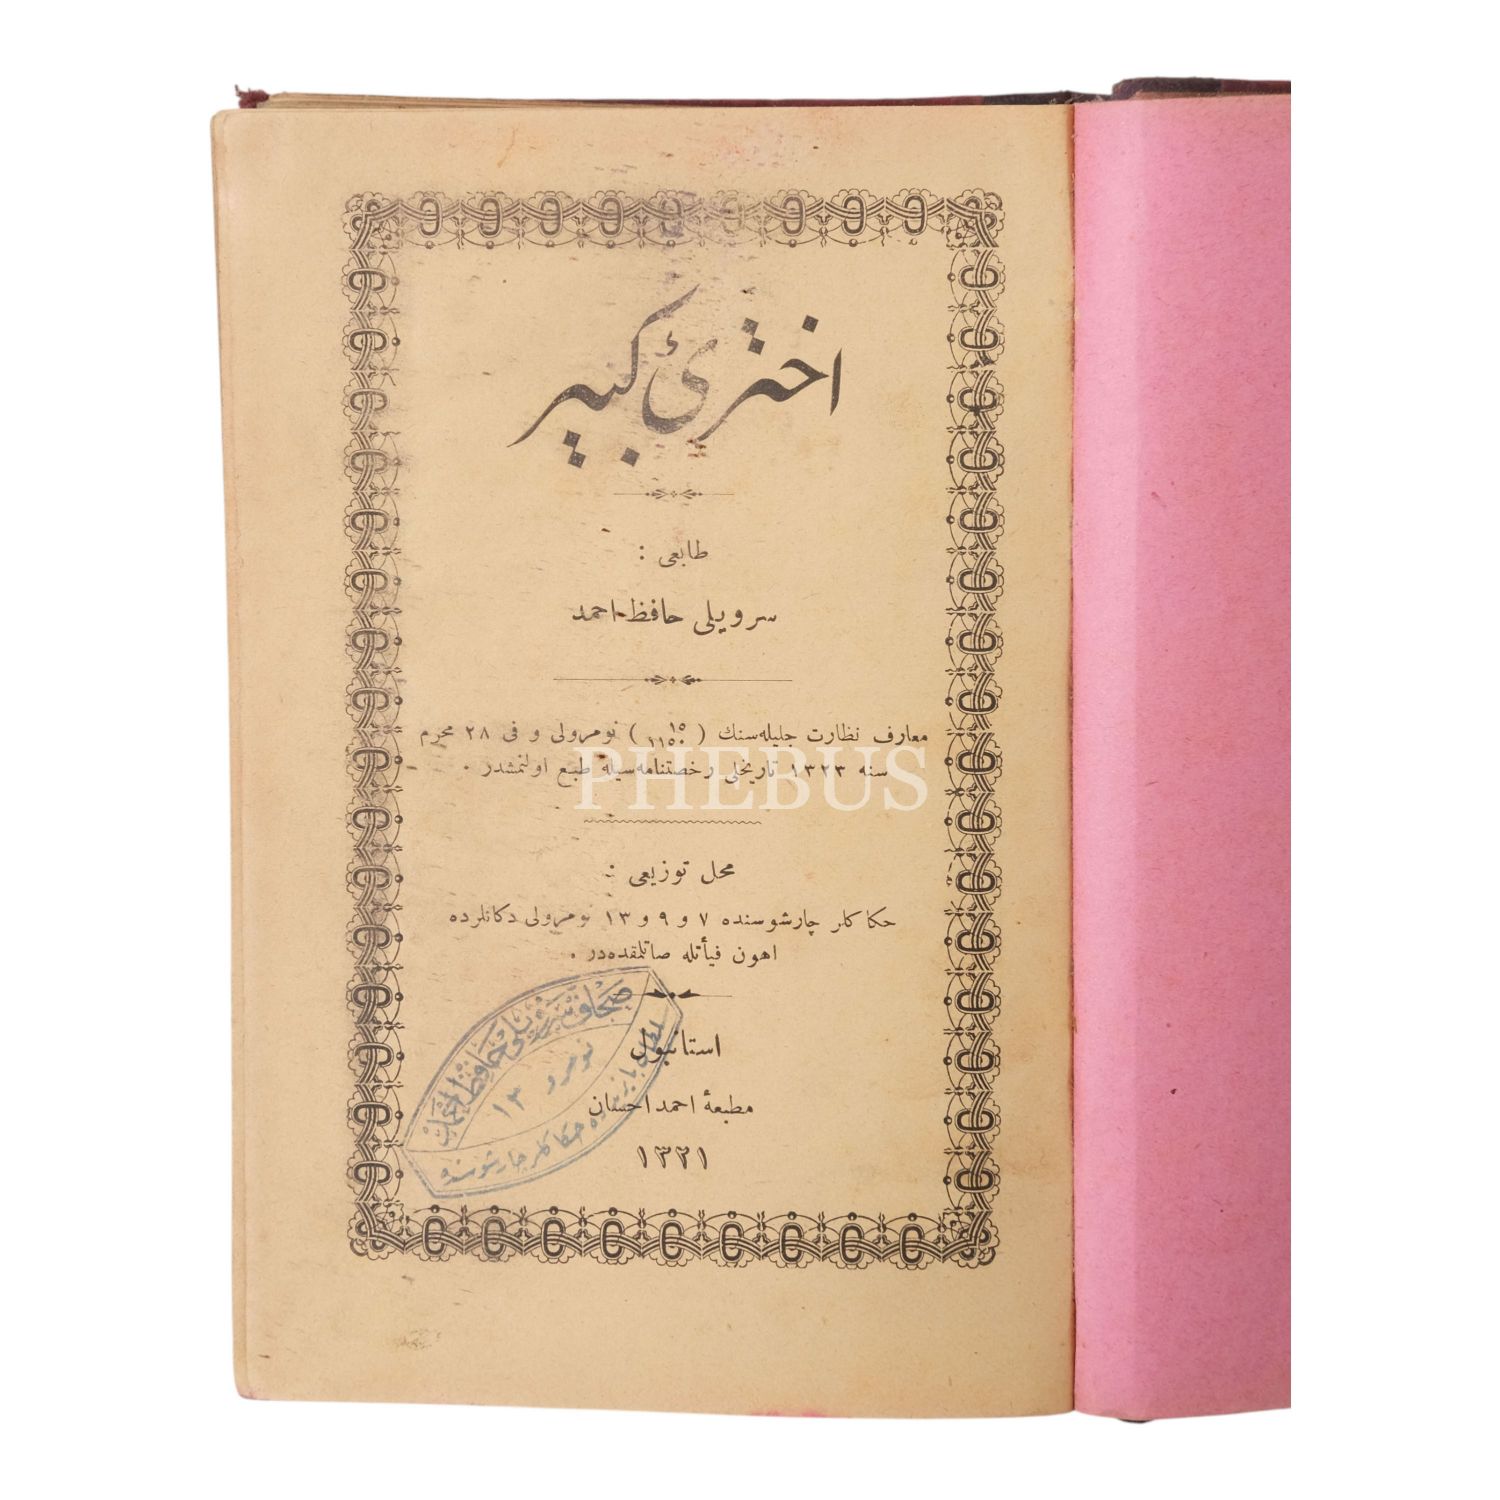 اخترئ كبير
طابعی :
سرویلی حافظ احمد
معارف نظارت جلیله‌سنك ( ١٥ ١١٥٠ ) نومرولی و فی ٢٨ محرم
سنه ١٣٢٣ تاریخلی رخصتنامه‌سیله طبع اولنمشدر .
PHEBUS
محل توزیعی :
حكاكلر چارشوسنده ٧ و ٩ و ١٣ نومرولی دكانلرده
اهون فیأتله صاتلمقده‌در .
استانبول
مطبعۀ احمد احسان
١٣٢١
صحاف سرویلی حافظ احمد
نومرو ١٣
حكاكلر چارشوسنده